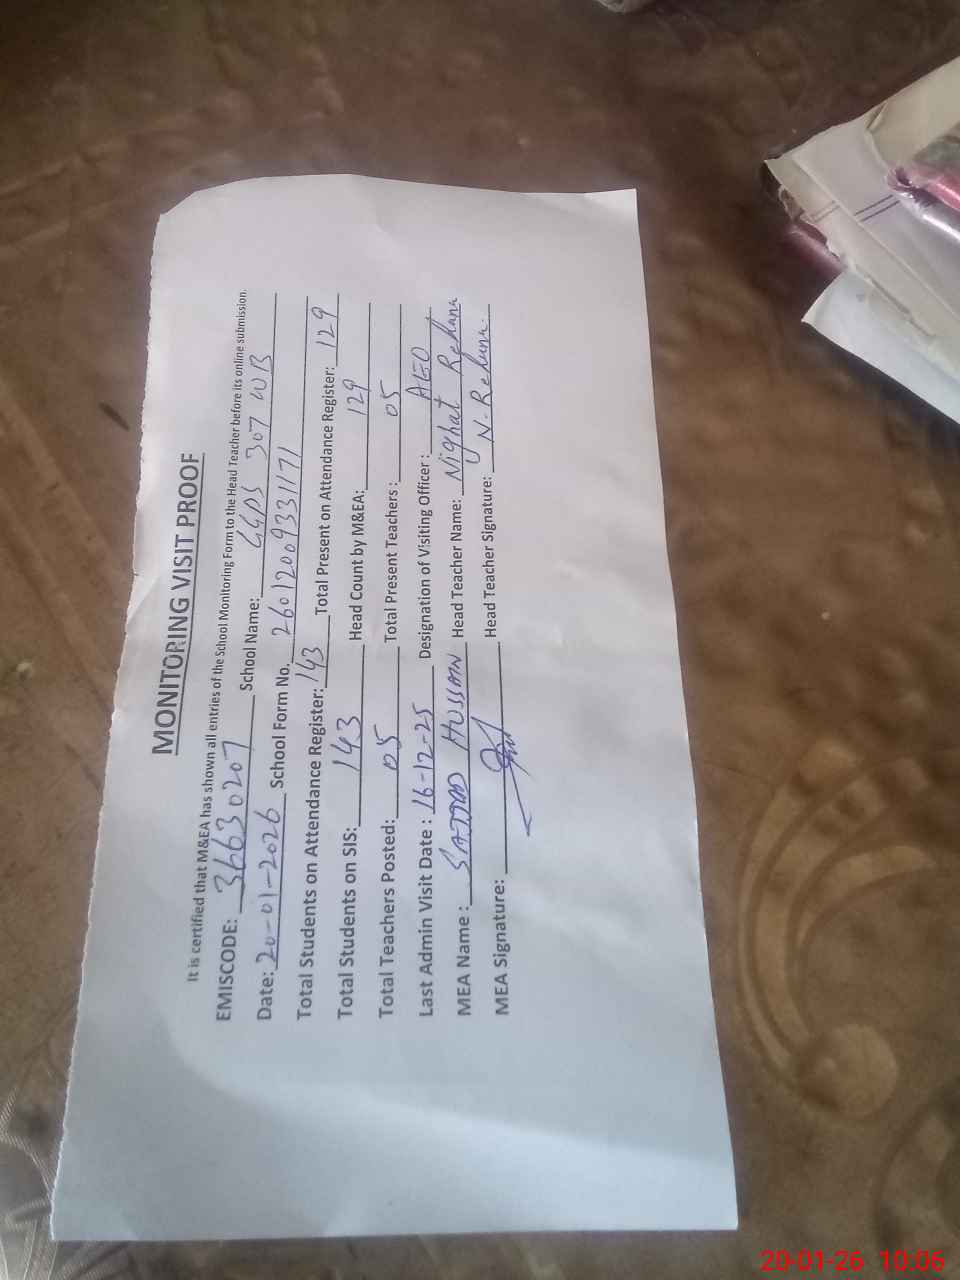 MONITORING VISIT PROOF
It is certified that M&EA has shown all entries of the School Monitoring Form to the Head Teacher before its online submission.
EMISCODE: 36630207 School Name: GGPS 307 WB
Date: 20-01-2026 School Form No. 26012009331171
Total Students on Attendance Register: 143 Total Present on Attendance Register: 129
Total Students on SIS: 143 Head Count by M&EA: 129
Total Teachers Posted: 05 Total Present Teachers: 05
Last Admin Visit Date: 16-12-25 Designation of Visiting Officer: AEO
MEA Name: SAJJAD HUSSAIN Head Teacher Name: Nighat Rehana
MEA Signature: Head Teacher Signature: N. Rehana
20-01-26 10:06